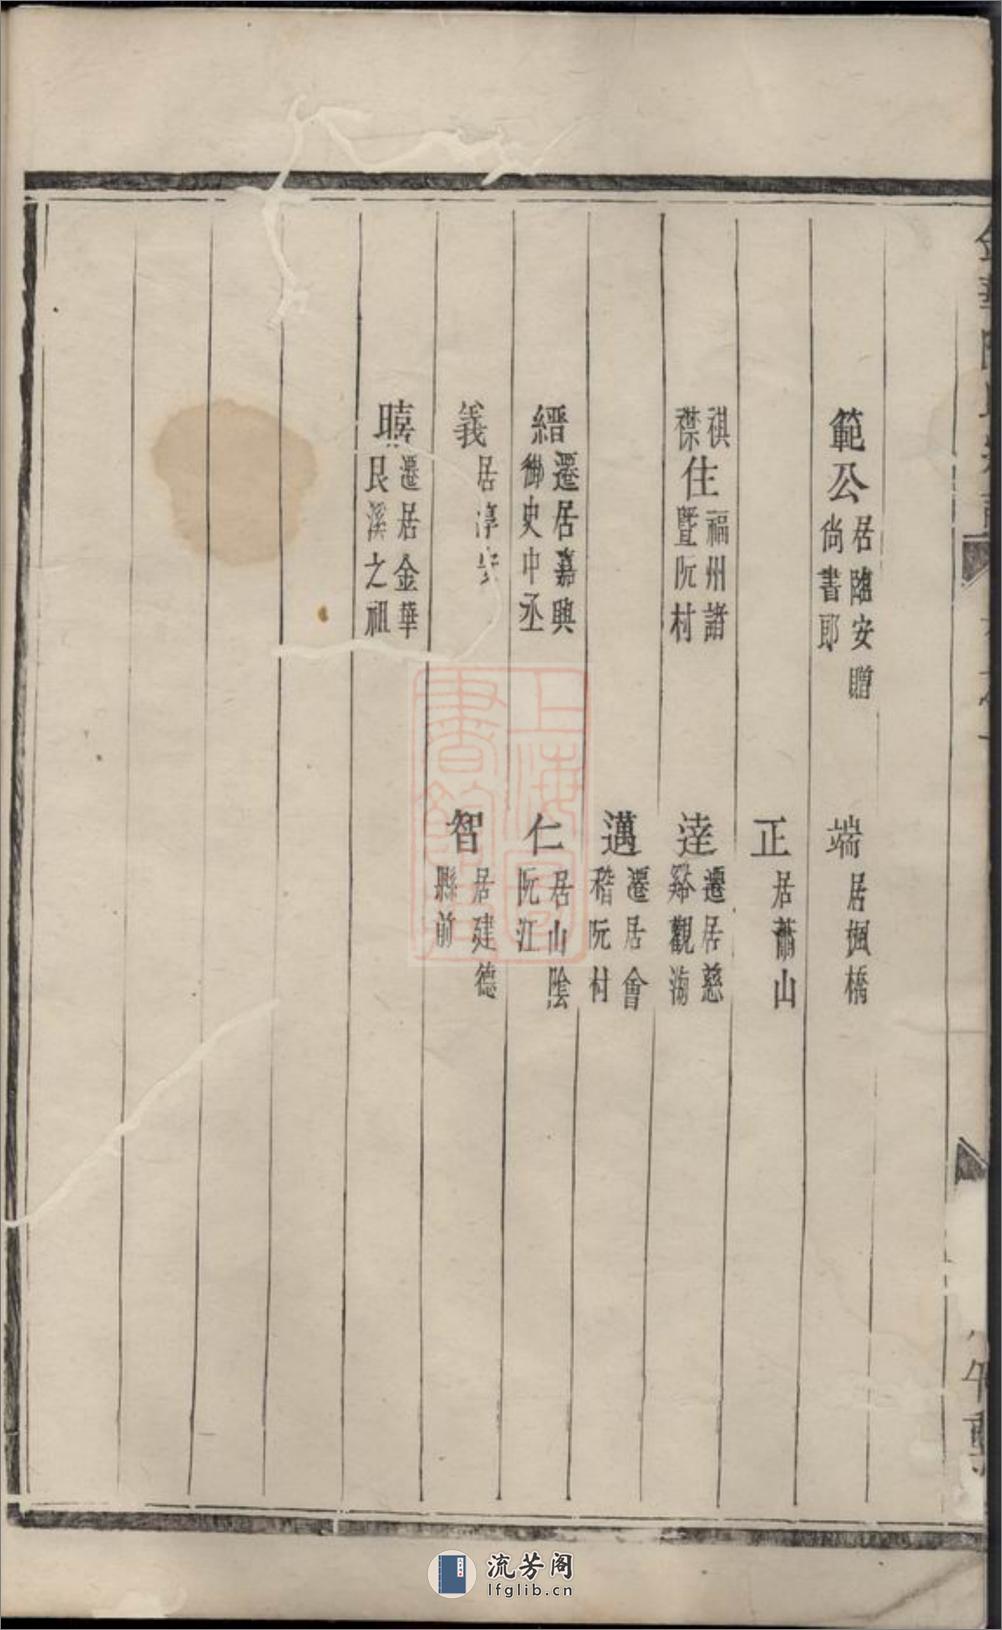 範公 居臨安贈尚書郎
祺禁住 福州諸暨阮村
縉 遷居嘉興御史中丞
義 居淳安
暿 遷居金華艮溪之祖
端 居楓橋
正 居蕭山
逹 遷居慈谿觀海
邁 遷居會稽阮村
仁 居山陰阮江
智 居建德縣前
上海圖書館藏
流芳阁
lfglib.cn